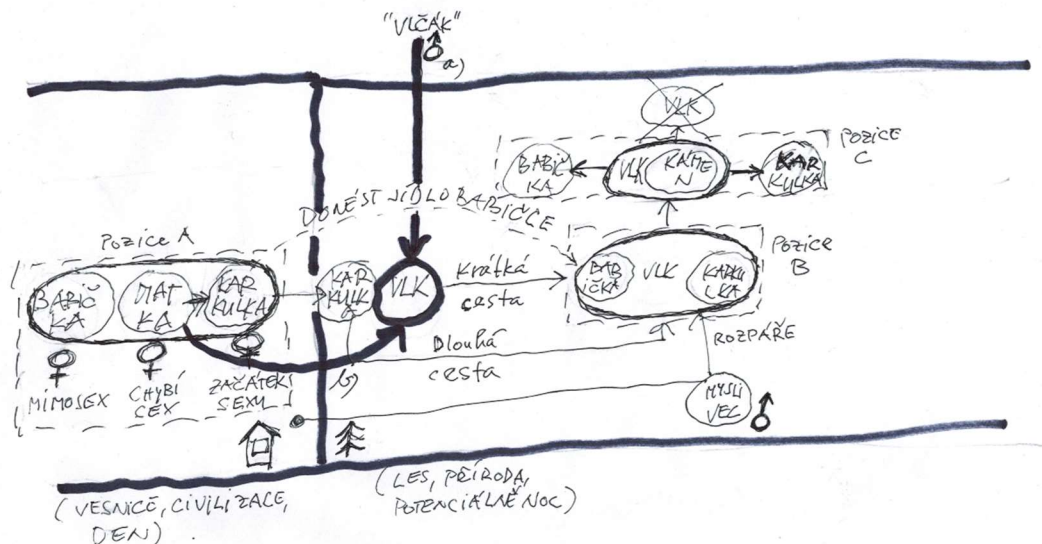 "VLČÁK"
a)
VLK
POZICE
C
BABIČ
KA
VLK
KÁME
N
KAR
KULKA
DONÉST JÍDLO BABIČCE
Pozice A
BABIČ
KA
MAT
KA
KAR
KULKA
KAR
KULK
VLK
Krátká
cesta
BAB
IČKA
VLK
KARKU
LKA
POZICE
B
Dlouhá
cesta
b)
ROZPÁŘE
MIMOSEX
CHYBÍ
SEX
ZAČÁTEK
SEXU
MYSLI
VEC
(VESNICE, CIVILIZACE,
DEN)
(LES, PŘÍRODA,
POTENCIÁLNĚ NOC)